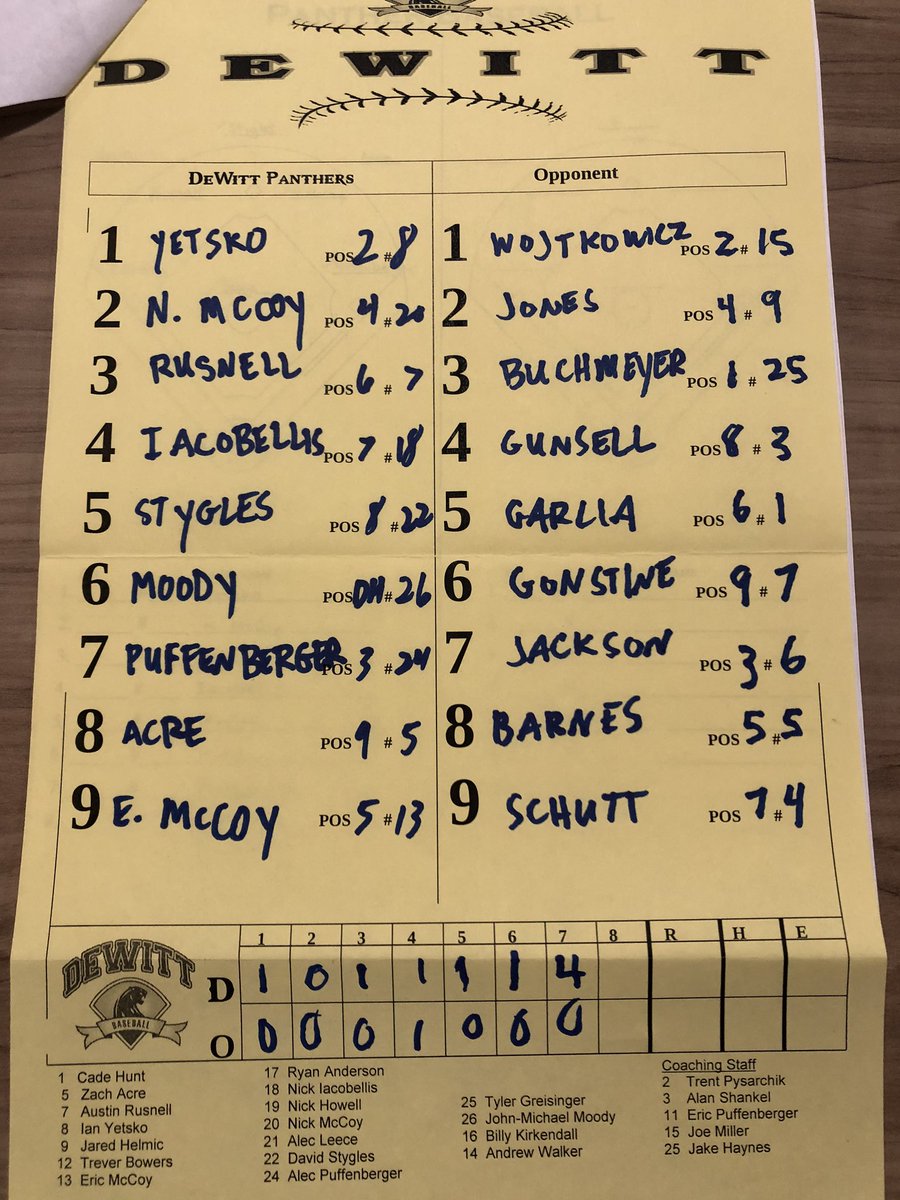 DEWITT
DEWITT PANTHERS Opponent
1 YETSKO POS 2 # 8 1 WOJTKOWICZ POS 2 # 15
2 N. MCCOY POS 4 # 20 2 JONES POS 4 # 9
3 RUSNELL POS 6 # 7 3 BUCHMEYER POS 1 # 25
4 IACOBELLIS POS 7 # 18 4 GUNSELL POS 8 # 3
5 STYGLES POS 8 # 22 5 GARLIA POS 6 # 1
6 MOODY POS DH # 26 6 GONSTINE POS 9 # 7
7 PUFFENBERGER POS 3 # 24 7 JACKSON POS 3 # 6
8 ACRE POS 9 # 5 8 BARNES POS 5 # 5
9 E. MCCOY POS 5 # 13 9 SCHUTT POS 7 # 4
DEWITT
BASEBALL
1 2 3 4 5 6 7 8 R H E
D 1 0 1 1 1 1 4
O 0 0 0 1 0 0 0
1 Cade Hunt
5 Zach Acre
7 Austin Rusnell
8 Ian Yetsko
9 Jared Helmic
12 Trever Bowers
13 Eric McCoy
17 Ryan Anderson
18 Nick Iacobellis
19 Nick Howell
20 Nick McCoy
21 Alec Leece
22 David Stygles
24 Alec Puffenberger
25 Tyler Greisinger
26 John-Michael Moody
16 Billy Kirkendall
14 Andrew Walker
Coaching Staff
2 Trent Pysarchik
3 Alan Shankel
11 Eric Puffenberger
15 Joe Miller
25 Jake Haynes